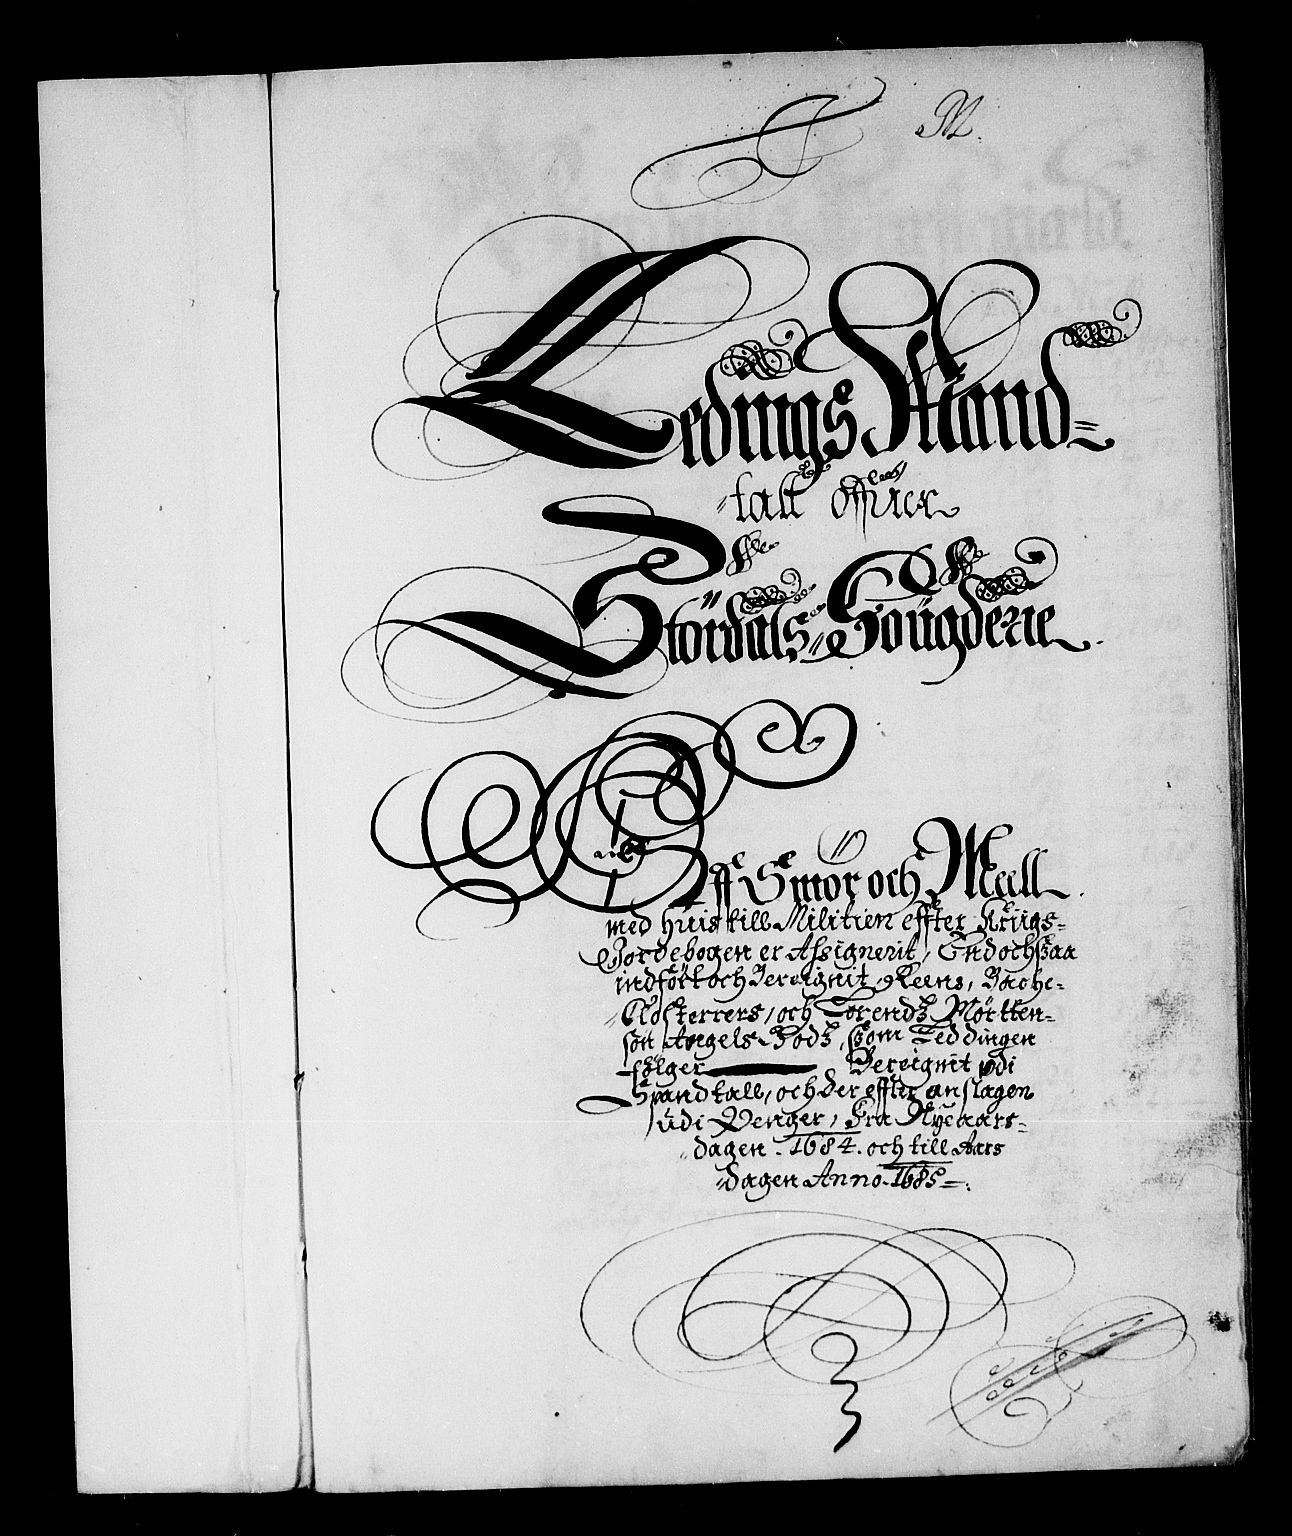 M.
Ledings Mand=
tall offuer
Stördals Fougderie.
Aff Smör och Meell
med huis till Militien effter Kriigs=
Jordebogen er Assignerit, End ochsaa
indfört och Bereignit, Reens, Bache-
Closterrers, och Lorendz Mörtten=
sön Angels Godz, som Leddingen
følger Bereignit udi
Spandtall, och der effter anslagen
udi Penger, Fra Nyeaars=
dagen. 1684. och till Aars
dagen Anno. 1685